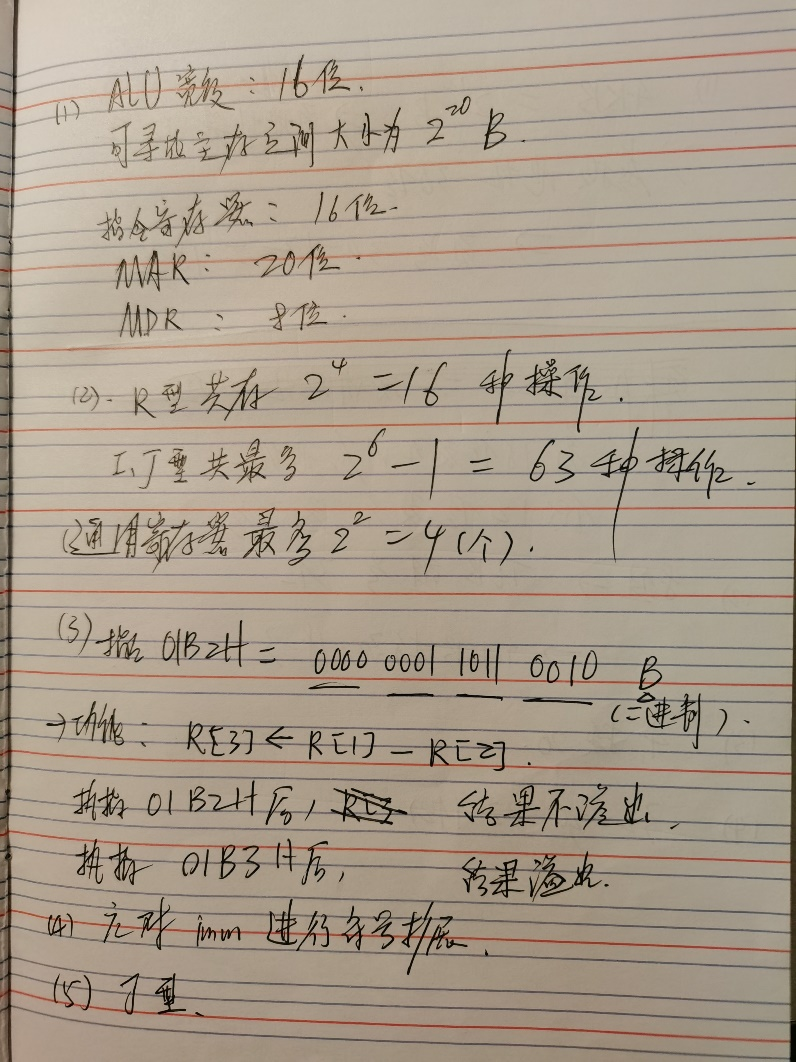 (1) ALU宽度：16位.
可寻址主存空间大小为 2^20 B.
指令寄存器：16位.
MAR：20位.
MDR：8位.
(2). R型共有 2^4 =16 种操作.
I、J型共最多 2^6 -1 = 63种操作.
通用寄存器最多2^2 =4(个).
(3) 指令 01B2H = 0000 0001 1011 0010 B
(二进制).
→功能：R[3] ← R[1] - R[2].
执行 01B2H后, 结果不溢出.
执行 01B3H后, 结果溢出.
(4) 应对 imm 进行符号扩展.
(5) J型.